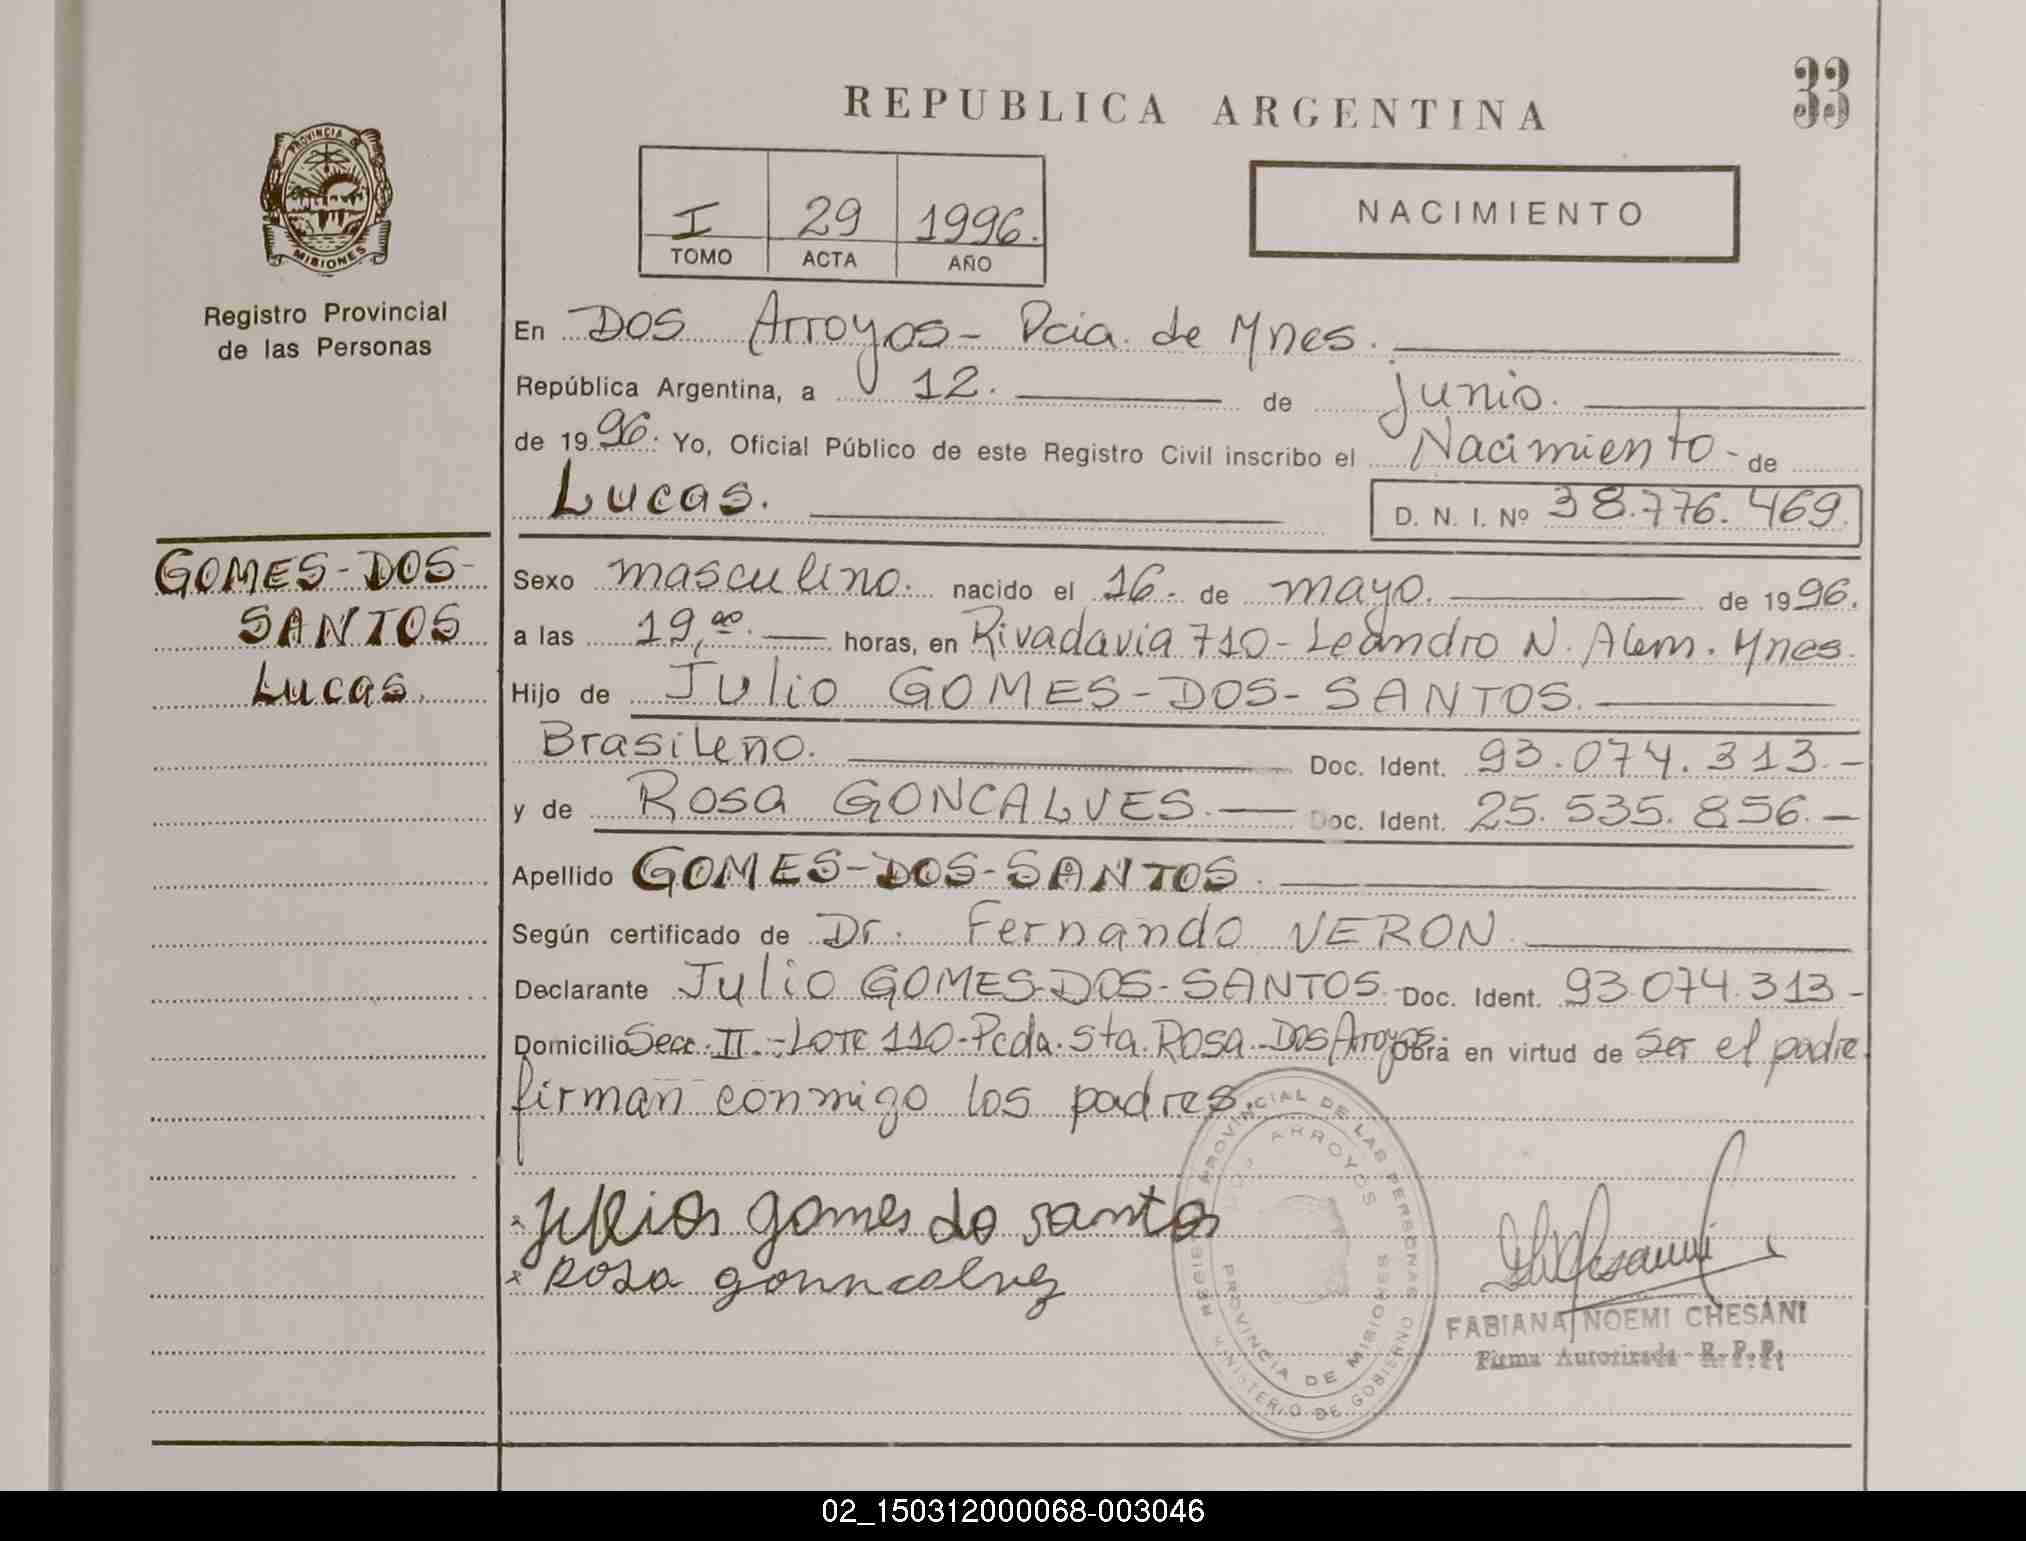 REPUBLICA ARGENTINA
33
PROVINCIA DE
MISIONES
Registro Provincial
de las Personas
I 29 1996.
TOMO ACTA AÑO
NACIMIENTO
En Dos Arroyos - Pcia. de Mnes.
República Argentina, a 12. de junio.
de 1996. Yo, Oficial Público de este Registro Civil inscribo el Nacimiento - de
Lucas. D. N. I. Nº 38.776.469.
GOMES-DOS-
SANTOS
Lucas.
Sexo masculino. nacido el 16. de mayo. de 1996.
a las 19,00. horas, en Rivadavia 710 - Leandro N. Alem. Mnes.
Hijo de Julio GOMES-DOS-SANTOS.
Brasileño. Doc. Ident. 93.074.313.-
y de Rosa GONCALVES. Doc. Ident. 25.535.856.-
Apellido GOMES-DOS-SANTOS.
Según certificado de Dr. Fernando VERON
Declarante Julio GOMES-DOS-SANTOS. Doc. Ident. 93.074.313-
Domicilio Secc. II.-Lote 110-Pcda. Sta. Rosa-Dos Arroyos. Obra en virtud de ser el padre.
firman conmigo los padres.
Julios gomes do santos
Rosa gonncalvez
REGISTRO PROVINCIAL DE LAS PERSONAS
MINISTERIO DE GOBIERNO
DOS ARROYOS
PROVINCIA DE MISIONES
FABIANA NOEMI CHESANI
Firma Autorizada R.P.P.
02_150312000068-003046